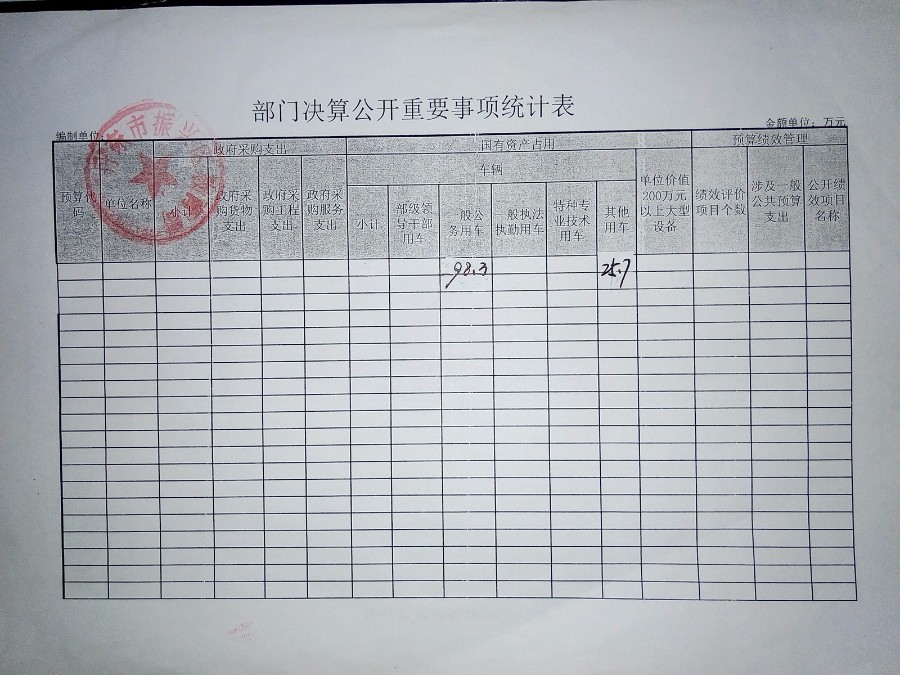 部门决算公开重要事项统计表
编制单位:
金额单位：万元
政府采购支出
国有资产占用
预算绩效管理
车辆
预算代码
单位名称
小计
政府采购货物支出
政府采购工程支出
政府采购服务支出
小计
部级领导干部用车
一般公务用车
一般执法执勤用车
特种专业技术用车
其他用车
单位价值200万元以上大型设备
绩效评价项目个数
涉及一般公共预算支出
公开绩效项目名称
98.3
25.7
市振兴